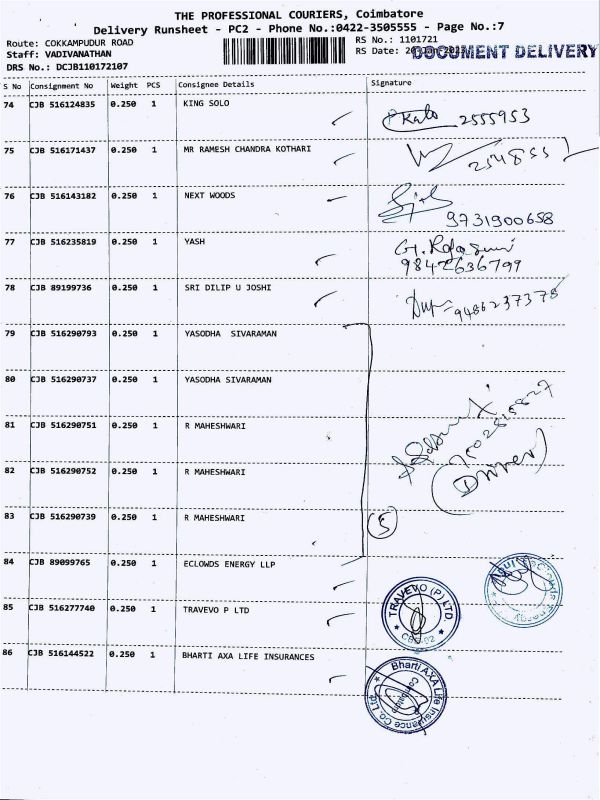 THE PROFESSIONAL COURIERS, Coimbatore
Delivery Runsheet - PC2 - Phone No.:0422-3505555 - Page No.:7
Route: COKKAMPUDUR ROAD
RS No.: 1101721
Staff: VADIVANATHAN
RS Date:
DOCUMENT DELIVERY
DRS No.: DCJB110172107
S No Consignment No Weight PCS Consignee Details Signature
74 CJB 516124835 0.250 1 KING SOLO
2555953
75 CJB 516171437 0.250 1 MR RAMESH CHANDRA KOTHARI
76 CJB 516143182 0.250 1 NEXT WOODS
9731900658
77 CJB 516235819 0.250 1 YASH
9842636799
78 CJB 89199736 0.250 1 SRI DILIP U JOSHI
9486237378
79 CJB 516290793 0.250 1 YASODHA SIVARAMAN
80 CJB 516290737 0.250 1 YASODHA SIVARAMAN
81 CJB 516290751 0.250 1 R MAHESHWARI
82 CJB 516290752 0.250 1 R MAHESHWARI
(Driver)
83 CJB 516290739 0.250 1 R MAHESHWARI
5
84 CJB 89099765 0.250 1 ECLOWDS ENERGY LLP
85 CJB 516277740 0.250 1 TRAVEVO P LTD
TRAVEVO (P) LTD.
86 CJB 516144522 0.250 1 BHARTI AXA LIFE INSURANCES
Bharti AXA Life Insurance Co. Ltd